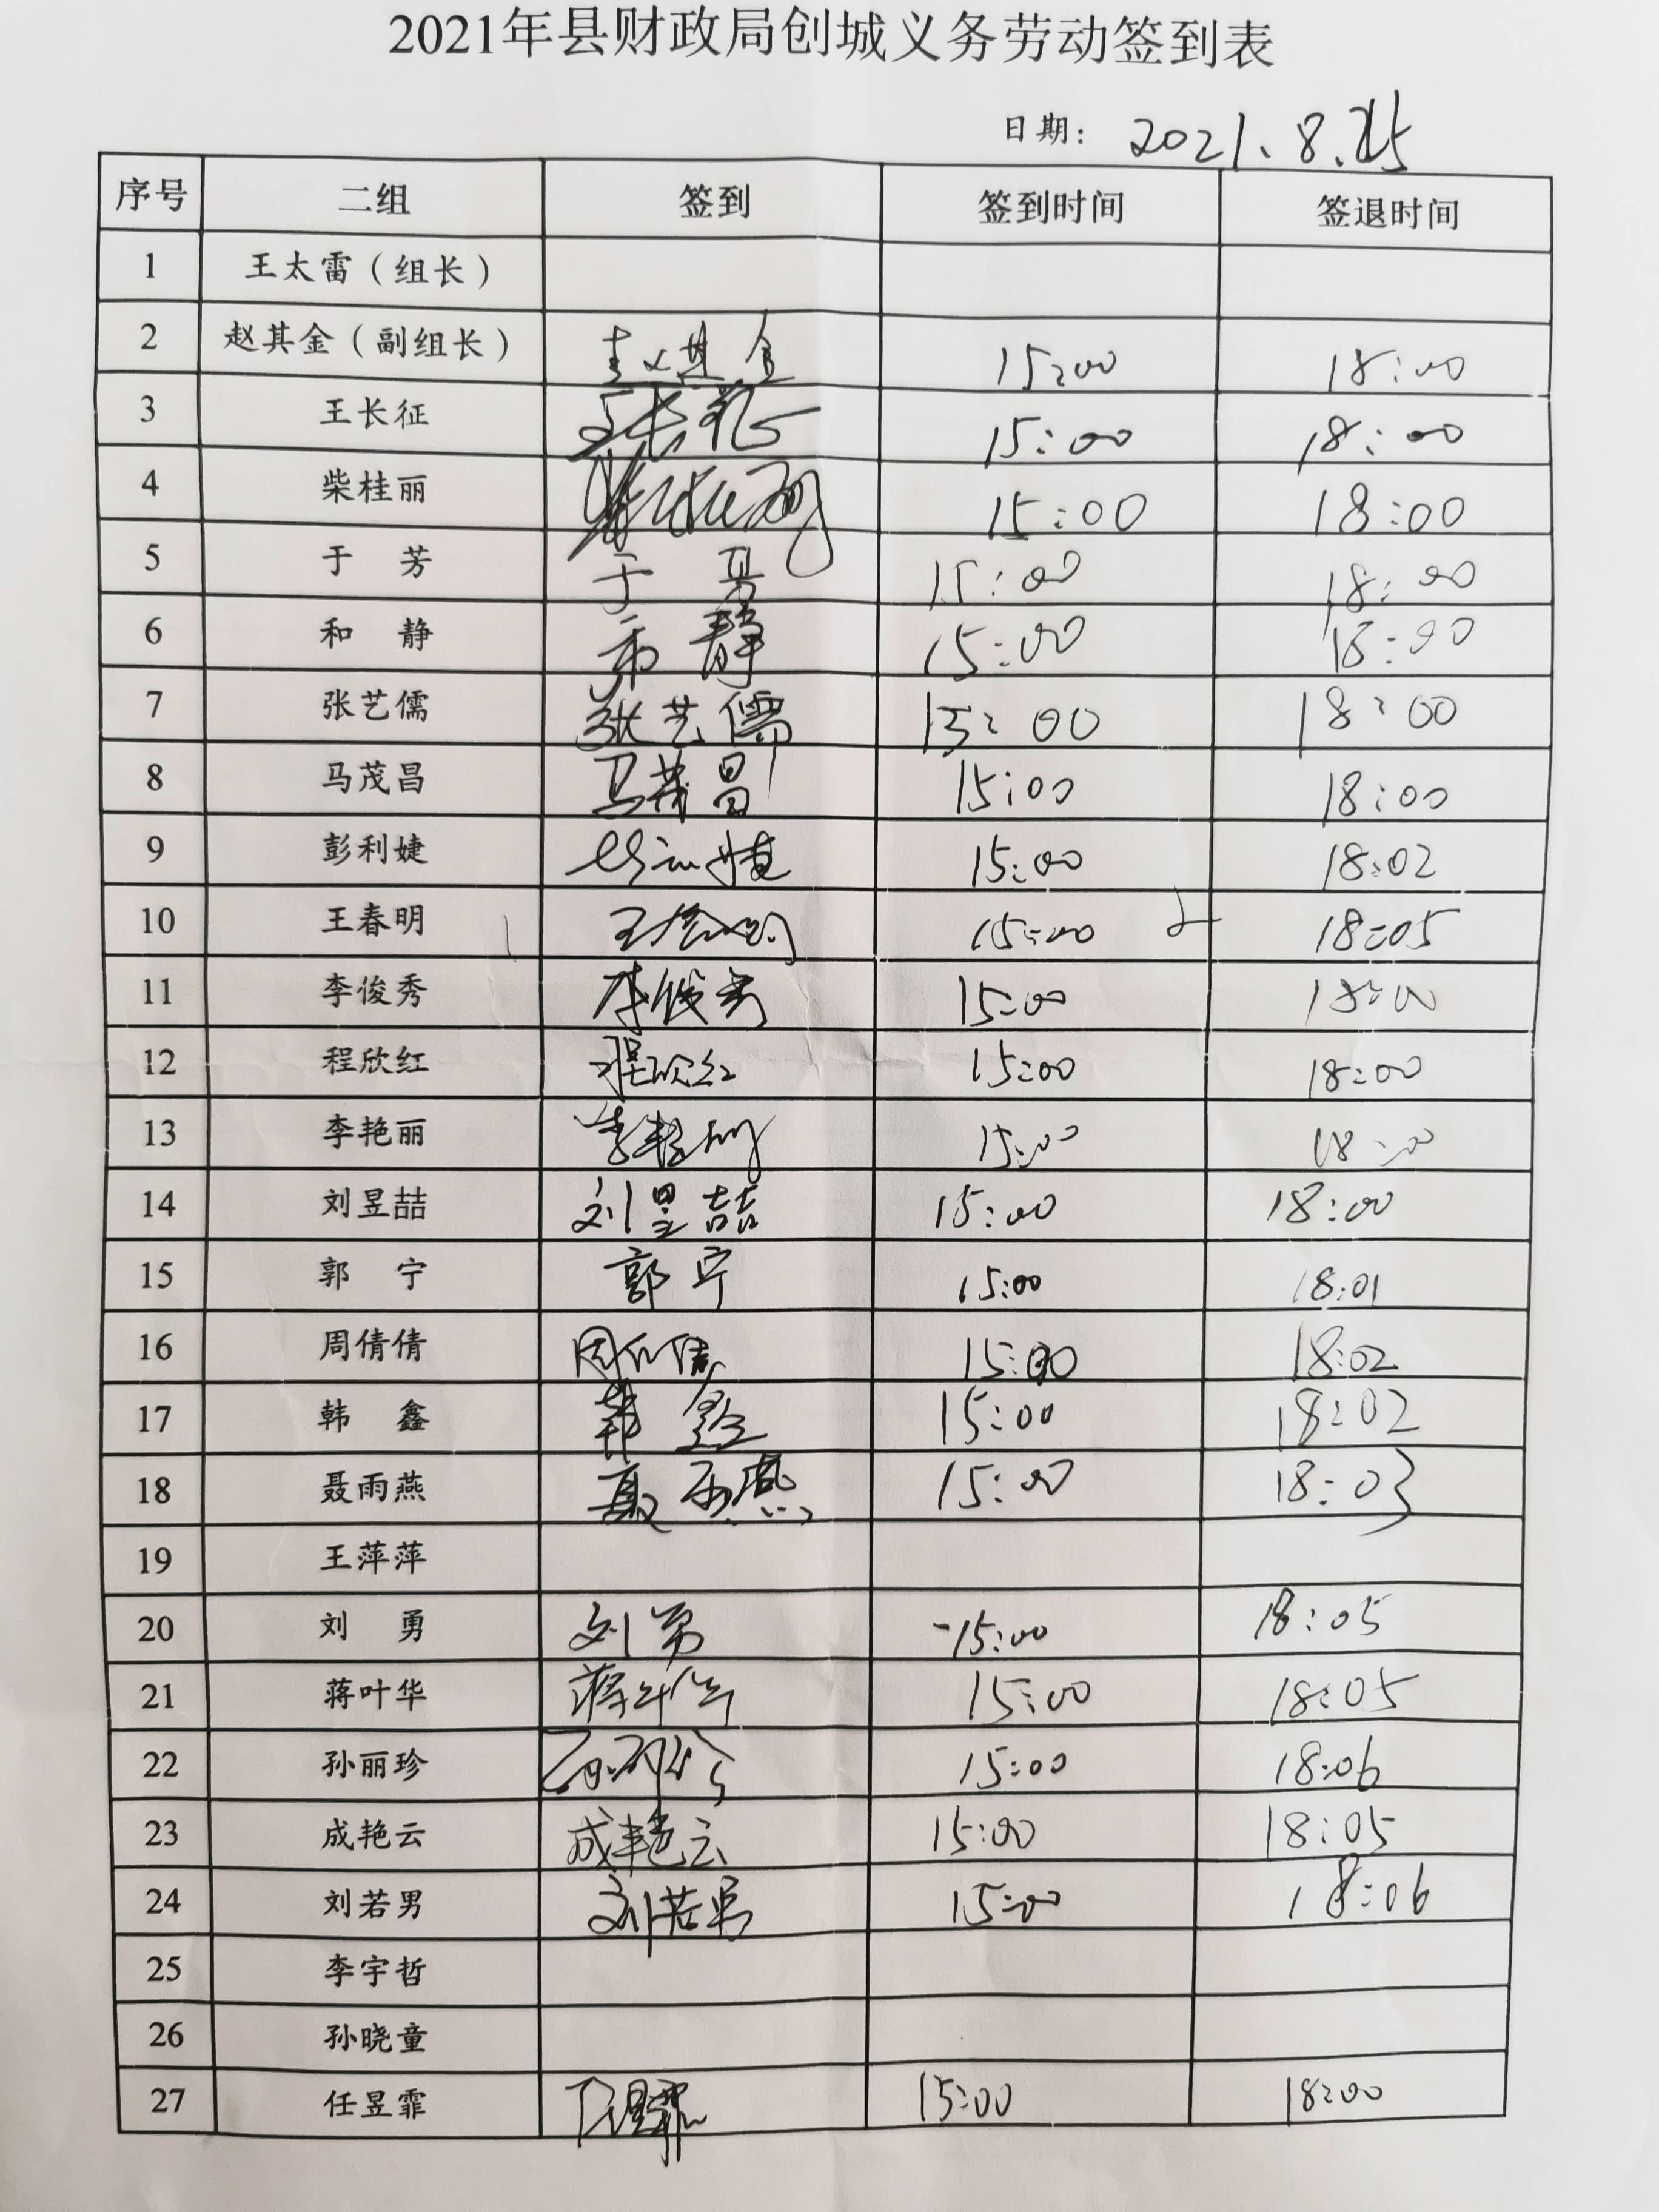 2021年县财政局创城义务劳动签到表
日期: 2021.8.25
序号 二组 签到 签到时间 签退时间
1 王太雷（组长）
2 赵其金（副组长） 赵其金 15:00 18:00
3 王长征 王长征 15:00 18:00
4 柴桂丽 柴桂丽 15:00 18:00
5 于 芳 于 芳 15:00 18:00
6 和 静 和 静 15:00 18:00
7 张艺儒 张艺儒 15:00 18:00
8 马茂昌 马茂昌 15:00 18:00
9 彭利婕 彭利婕 15:00 18:02
10 王春明 王春明 15:00 18:05
11 李俊秀 李俊秀 15:00 18:00
12 程欣红 程欣红 15:00 18:00
13 李艳丽 李艳丽 15:00 18:00
14 刘昱喆 刘昱喆 15:00 18:00
15 郭 宁 郭 宁 15:00 18:01
16 周倩倩 周倩倩 15:00 18:02
17 韩 鑫 韩 鑫 15:00 18:02
18 聂雨燕 聂雨燕 15:00 18:03
19 王萍萍
20 刘 勇 刘勇 15:00 18:05
21 蒋叶华 蒋叶华 15:00 18:05
22 孙丽珍 孙丽珍 15:00 18:06
23 成艳云 成艳云 15:00 18:05
24 刘若男 刘若男 15:00 18:06
25 李宇哲
26 孙晓童
27 任昱霏 任昱霏 15:00 18:00